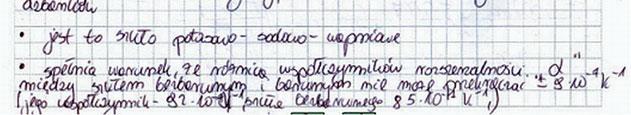 • jest to szkło potasowo-sodowo-wapniowe
• spełnia warunek, że różnica współczynników rozszerzalności "α"
między szkłem bezbarwnym i barwnym nie może przekraczać ± 3·10⁻⁷ K⁻¹
(jego współczynnik - 92·10⁻⁷ K⁻¹ szkła bezbarwnego 95·10⁻⁷ K⁻¹)